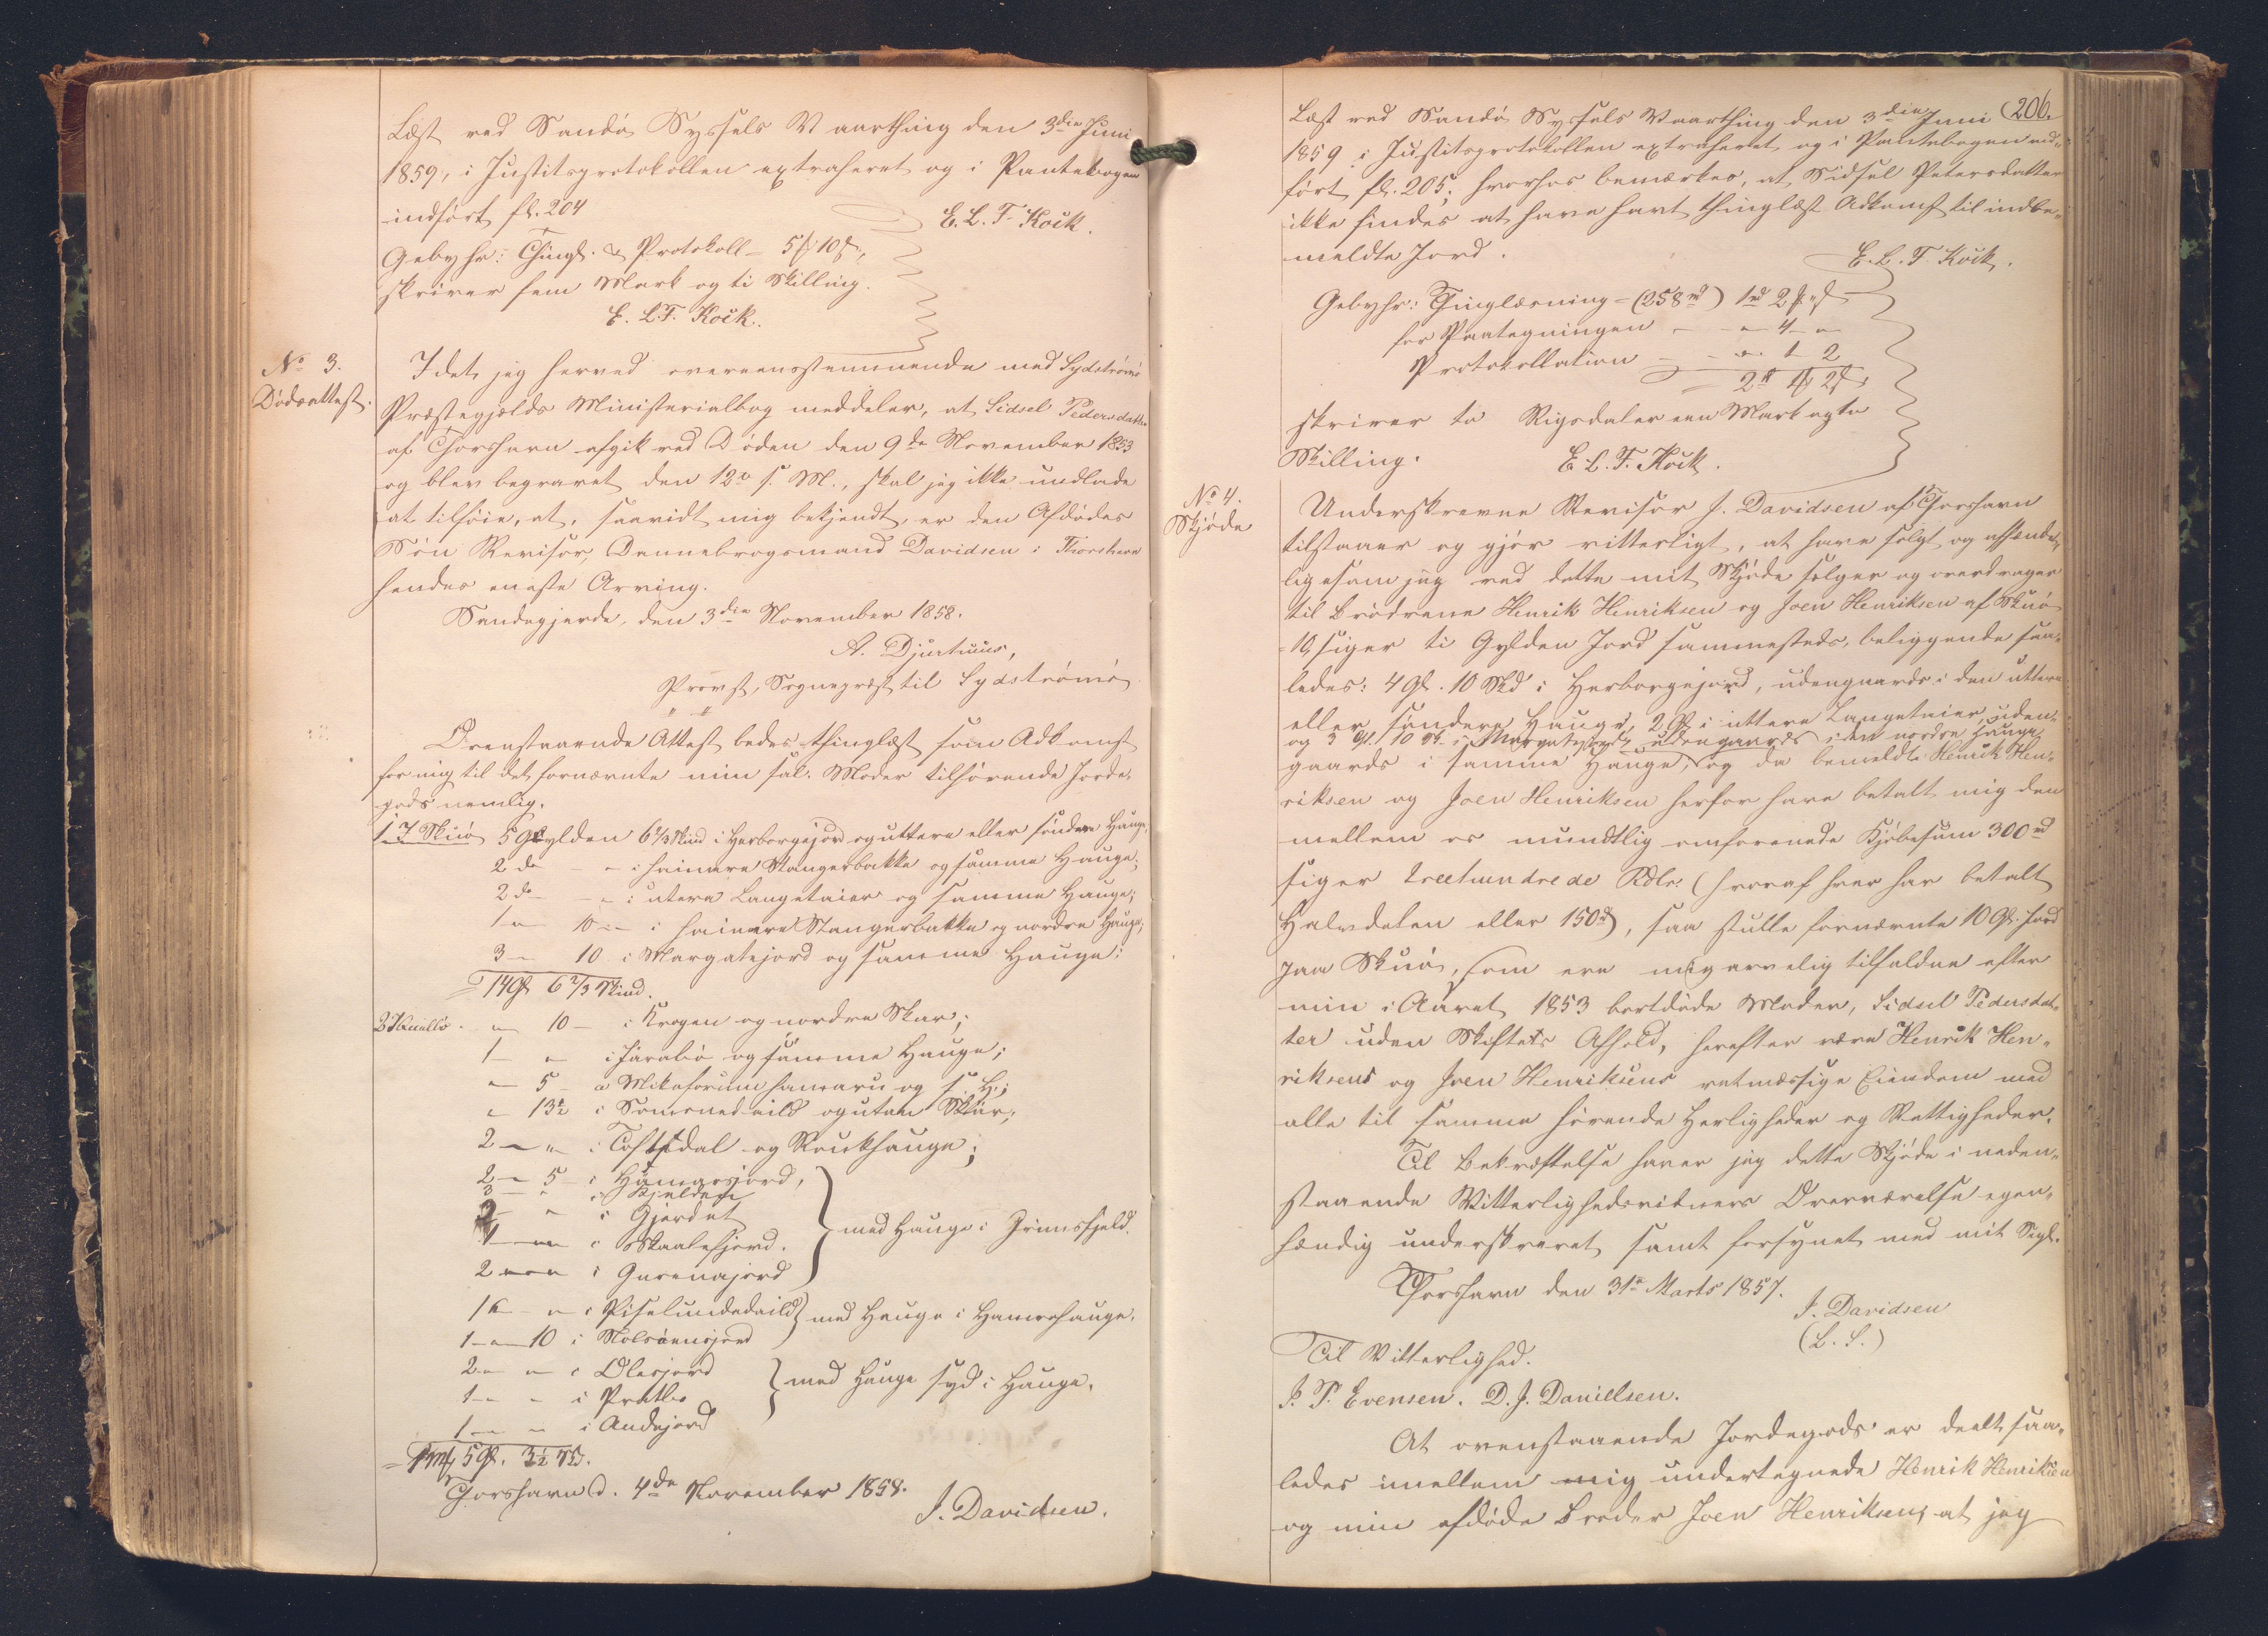 Læst ved Sandø Syssels Vaarthing den 3die Juni
1859, i Justitsprotokollen extraheret og i Pantebogen
indført fl. 204
E. L. T. Kock.
Gebyhr: Thingl. & Protokoll = 5 ℳ 10 ß,
skriver fem Mark og ti Skilling.
E. L. T. Kock.
No 3.
Dødsattest.
Idet jeg herved overeensstemmende med Sydstrømø
Præstegjelds Ministerialbog meddeler, at Sidsel Pedersdatter
af Thorshavn afgik ved Døden den 9de November 1853
og blev begravet den 12te s. M., skal jeg ikke undlade
at tilføie, at, saavidt mig bekjendt, er den Afdødes
Søn Revisor, Dannebrogsmand Davidsen i Thorshavn
hendes eneste Arving.
Sandegjerde, den 3die November 1858.
A. Djurhuus,
Provst, Sognepræst til Sydstrømø
Ovenstaaende Attest bedes thinglæst som Adkomst
for mig til det fornævnte min sal. Moder tilhørende Jorde-
gods nemlig.
1. I Skuø 5 Gylden 6 2/3 Skind i Herborgejord og uttere eller søndere Hauge,
2 do - - i heimare Stangerbakke og samme Hauge,
2 do - - i utere Langeteier og samme Hauge;
1 - 10 - i heimare Stangerbakke og nordre Hauge,
3 - 10 i Margatejord og samme Hauge:
= 14 Gl 6 2/3 Skind.
- 10 - i Krogen og nordre Skar;
1 - - i Jaraliø og samme Hauge;
- 5 - a Mikeforum hamaru og s. H.;
2 - - i Toftedal og Roukhauge;
2 - 5 - i Hamarsjord,
3 - - i Kjelden
2 - - i Gjerdet
1 - - i Skaalesjord.
med Hauge i Grimsfjeld.
2 - - i Gurenajord
1 6 - - i Piselundedeild
med Hauge i Hamrehauge.
1 - 10 i Nolsoensjord
2 - - i Olesjord
med Hauge syd i Hauge.
1 - - i Prattle
1 - - i Andejord
Thorshavn d. 4de November 1858.
J. Davidsen.
206.
Læst ved Sandø Syssels Vaarthing den 3die Juni
1859 i Justitsprotokollen extraheret og i Pantebogen ind-
ført fl. 205; hvorhos bemærkes, at Sidsel Petersdatter
ikke findes at have havt thinglæst Adkomst til indbe-
meldte Jord.
E. L. T. Kock.
Gebyhr: Thinglæsning = (258 rd) 1 rd 2 ℳ " ß
for Paategningen - - " 4 - "
Protokollation - - " 1 2
= 2 rd 1 ℳ 2 ß.
skriver to Rigsdaler een Mark og to
Skilling.
E. L. T. Kock.
No 4.
Skjøde
Underskrevne Revisor J. Davidsen af Thorshavn
tilstaaer og gjør vitterligt, at have solgt og afhændet,
ligesom jeg ved dette mit Skjøde sælger og overdrager
til Brødrene Henrik Henriksen og Joen Henriksen af Skuø
10, siger ti Gylden Jord sammesteds, beliggende saa-
ledes: 4 Gl. 10 Skd i Herborgejord, udengaards i den uttere
eller søndere Hauge, 2 Gl. i uttere Langeteier, uden-
og 3 Gl. 10 Sk. i Margatejord, udengaards i den nordre Hauge
gaards i samme Hauge, og da bemeldte Henrik Hen-
riksen og Joen Henriksen herfor have betalt mig den
mellem os mundtlig omforenede Kjøbesum 300 rd
siger treehundrede Rdlr. (hvoraf hver har betalt
Halvdelen eller 150 rd), saa skulle fornævnte 10 Gl. Jord
paa Skuø, som ere mig arvelig tilfaldne efter
min i Aaret 1853 bortdøde Moder, Sidsel Pedersdat-
ter uden Skiftets Afhold, herefter være Henrik Hen-
riksens og Joen Henriksens retmæssige Eiendom med
alle til samme hørende Herligheder og Rettigheder.
Til Bekræftelse haver jeg dette Skjøde i neden-
staaende Vitterlighedsvidners Overværelse egen-
hændig underskrevet samt forsynet med mit Segl.
Thorshavn den 31te Marts 1857.
J. Davidsen
(L. S.)
Til Vitterlighed.
J. P. Evensen. D. J. Danielsen.
At ovenstaaende Jordegods er deelt saa-
ledes imellem mig undertegnede Henrik Henriksen
og min afdøde Broder Joen Henriksen, at jeg